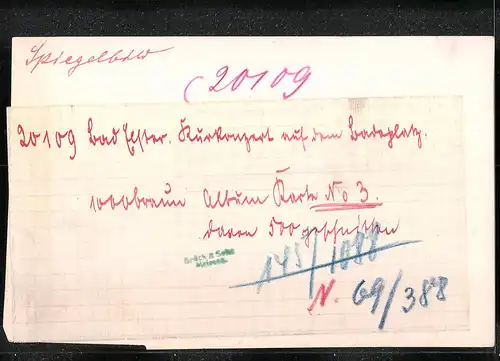 Spiegelbild
20109
20109 Bad Elster. Kurkonzert auf dem Badeplatz.
1000 braun Album Karte No 3.
davon 500 geschnitten
Brück & Sohn
Meissen.
145/1088
N. 69/388